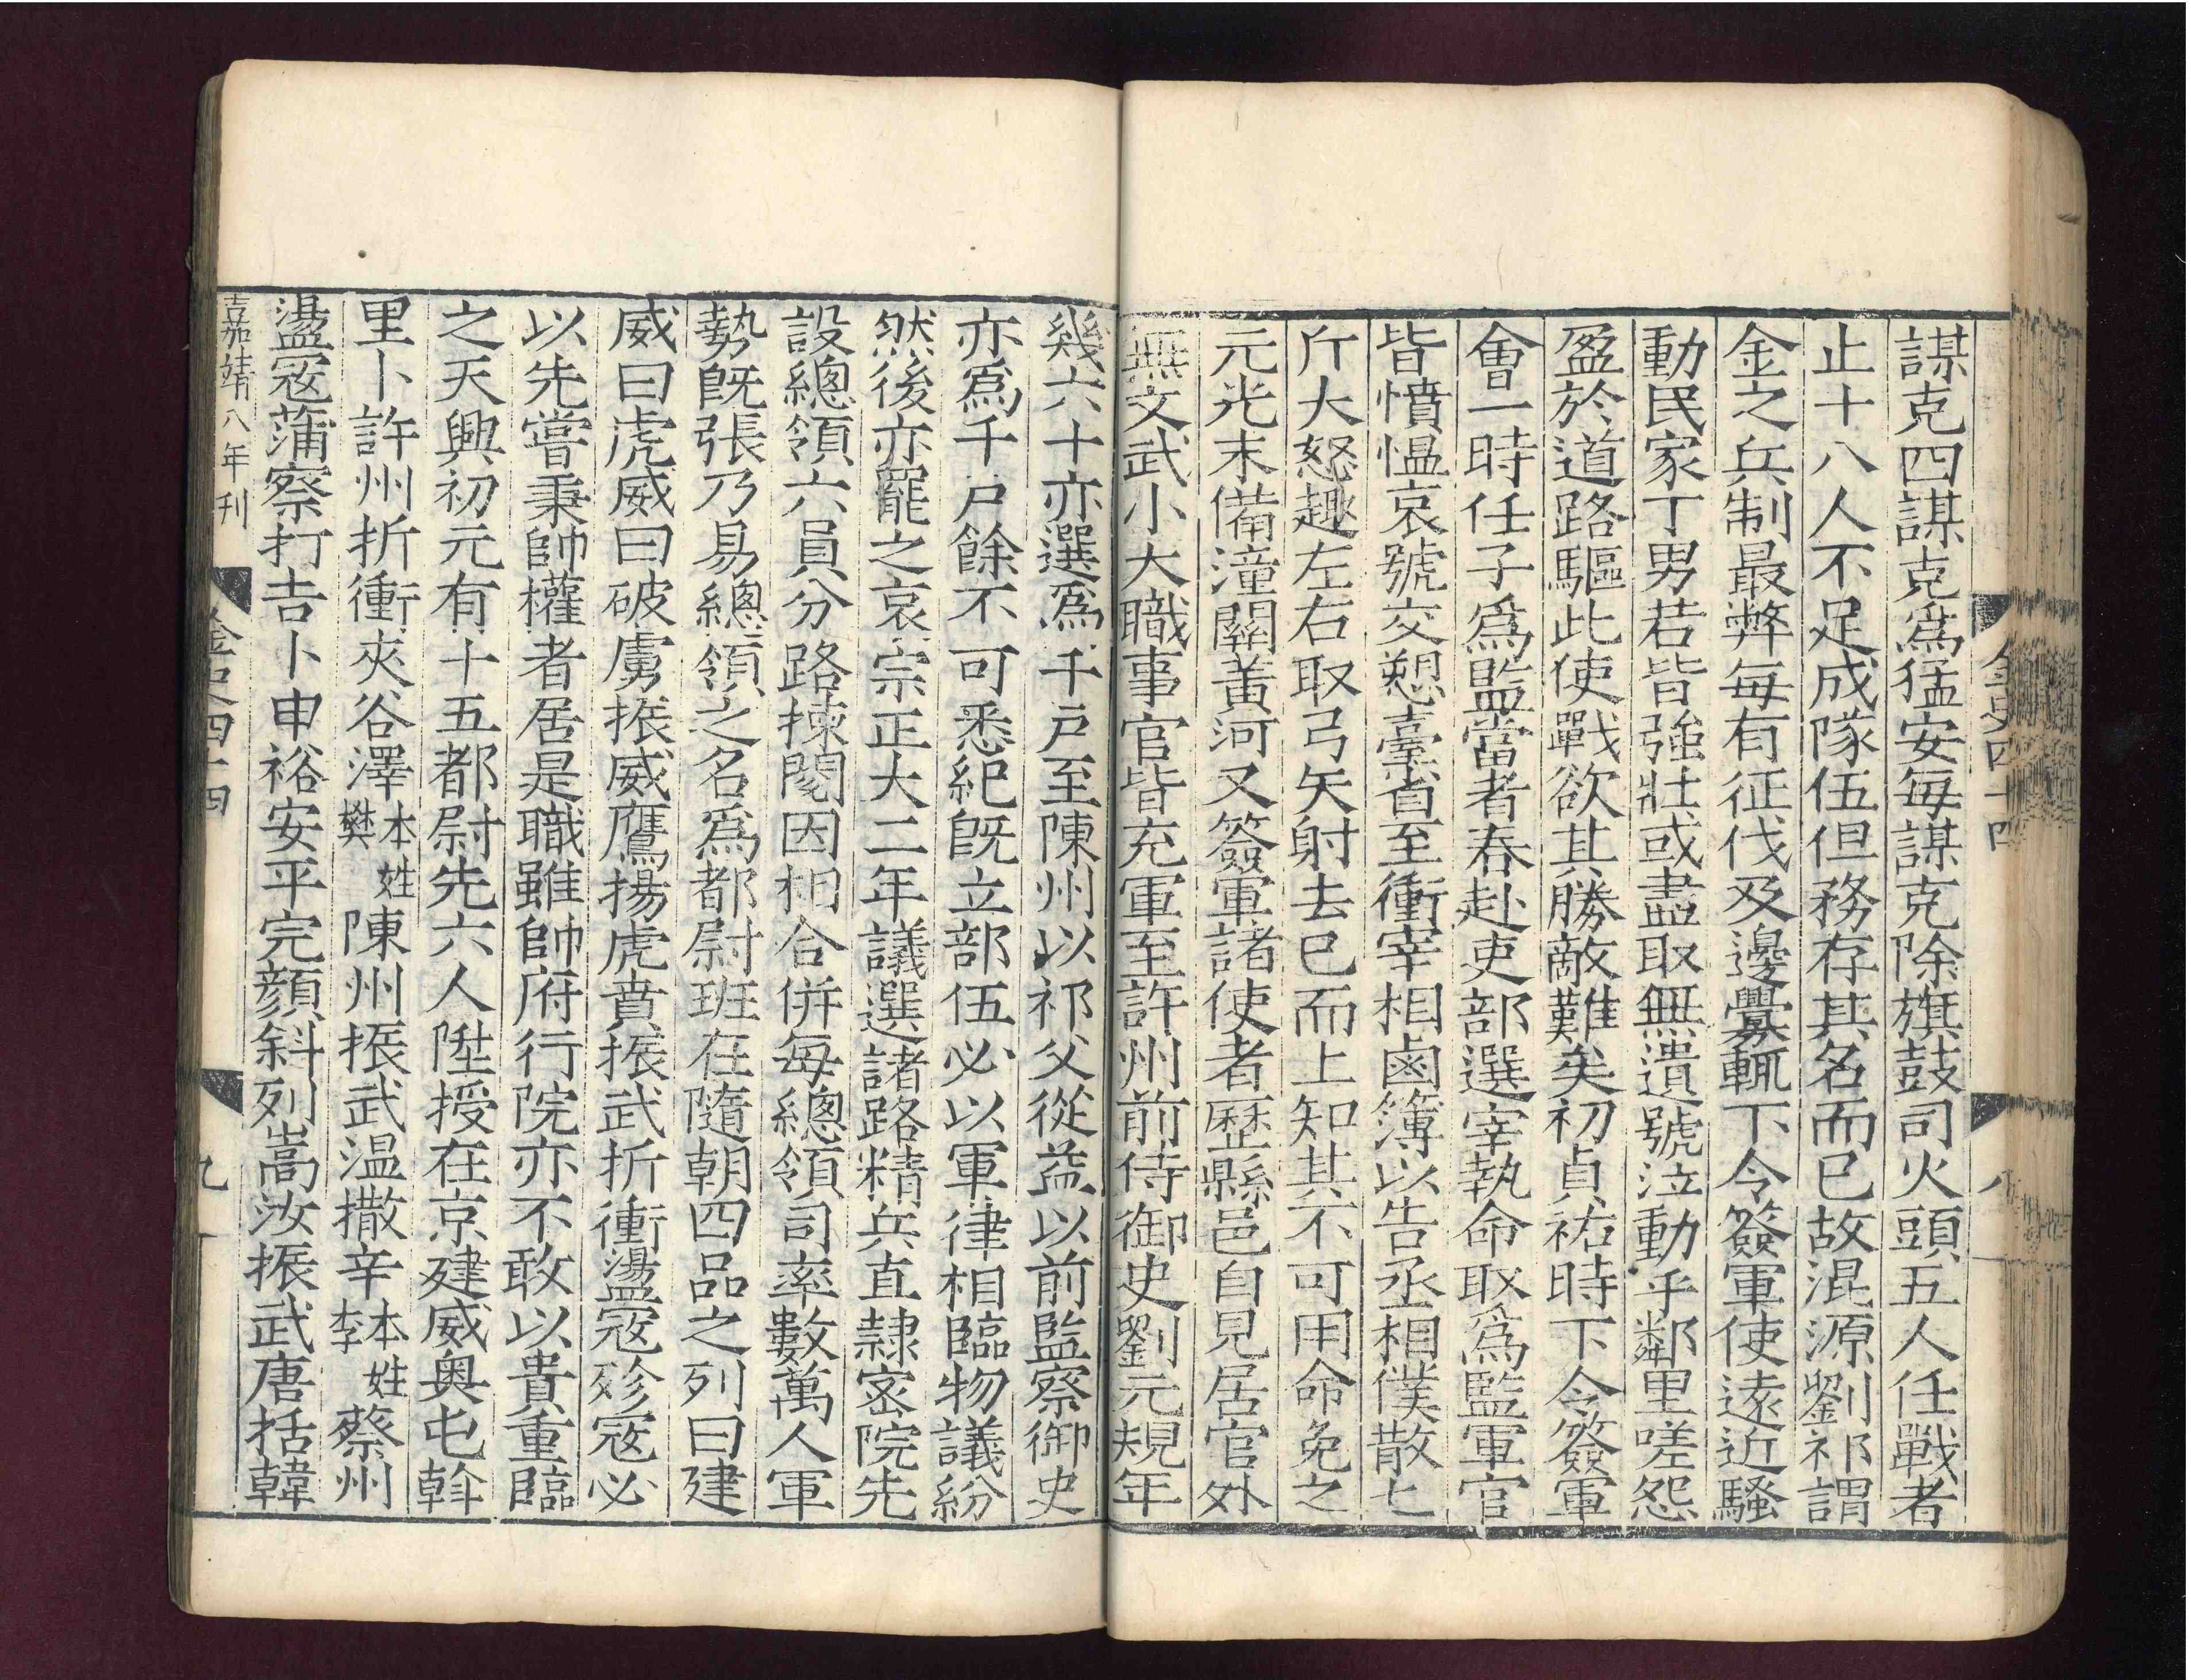 謀克四謀克爲猛安每謀克除旗鼓司火頭五人任戰者
止十八人不足成隊伍但務存其名而已故混源劉祁謂
金之兵制最弊每有征伐及邊釁輒下令簽軍使遠近騷
動民家丁男若皆強壯或盡取無遺號泣動乎鄰里嗟怨
盈於道路驅此使戰欲其勝敵難矣初貞祐時下令簽軍
會一時任子爲監當者春赴吏部選宰執命取爲監軍官
皆憤慍哀號交愬臺省至衝宰相鹵簿以告丞相僕散七
斤大怒趣左右取弓矢射去已而上知其不可用命免之
元光末備潼關黃河又簽軍諸使者歷縣邑自見居官外
無文武小大職事官皆充軍至許州前侍御史劉元規年
幾六十亦選爲千戶至陳州以祁父從益以前監察御史
亦爲千戶餘不可悉紀既立部伍必以軍律相臨物議紛
然後亦罷之哀宗正大二年議選諸路精兵直隷宻院先
設總領六員分路揀閱因相合併每總領司率數萬人軍
勢既張乃易總領之名爲都尉班在隨朝四品之列曰建
威曰虎威曰破虜振威鷹揚虎賁振武折衝盪冦殄冦必
以先嘗秉帥權者居是職雖帥府行院亦不敢以貴重臨
之天興初元有十五都尉先六人陞授在京建威奧屯斡
里卜許州折衝夾谷澤本姓樊陳州振武温撒辛本姓李蔡州
盪冦蒲察打吉卜申裕安平完顏斜列嵩汝振武唐括韓
嘉靖八年刊
金史四十四
九
金史四十四
八